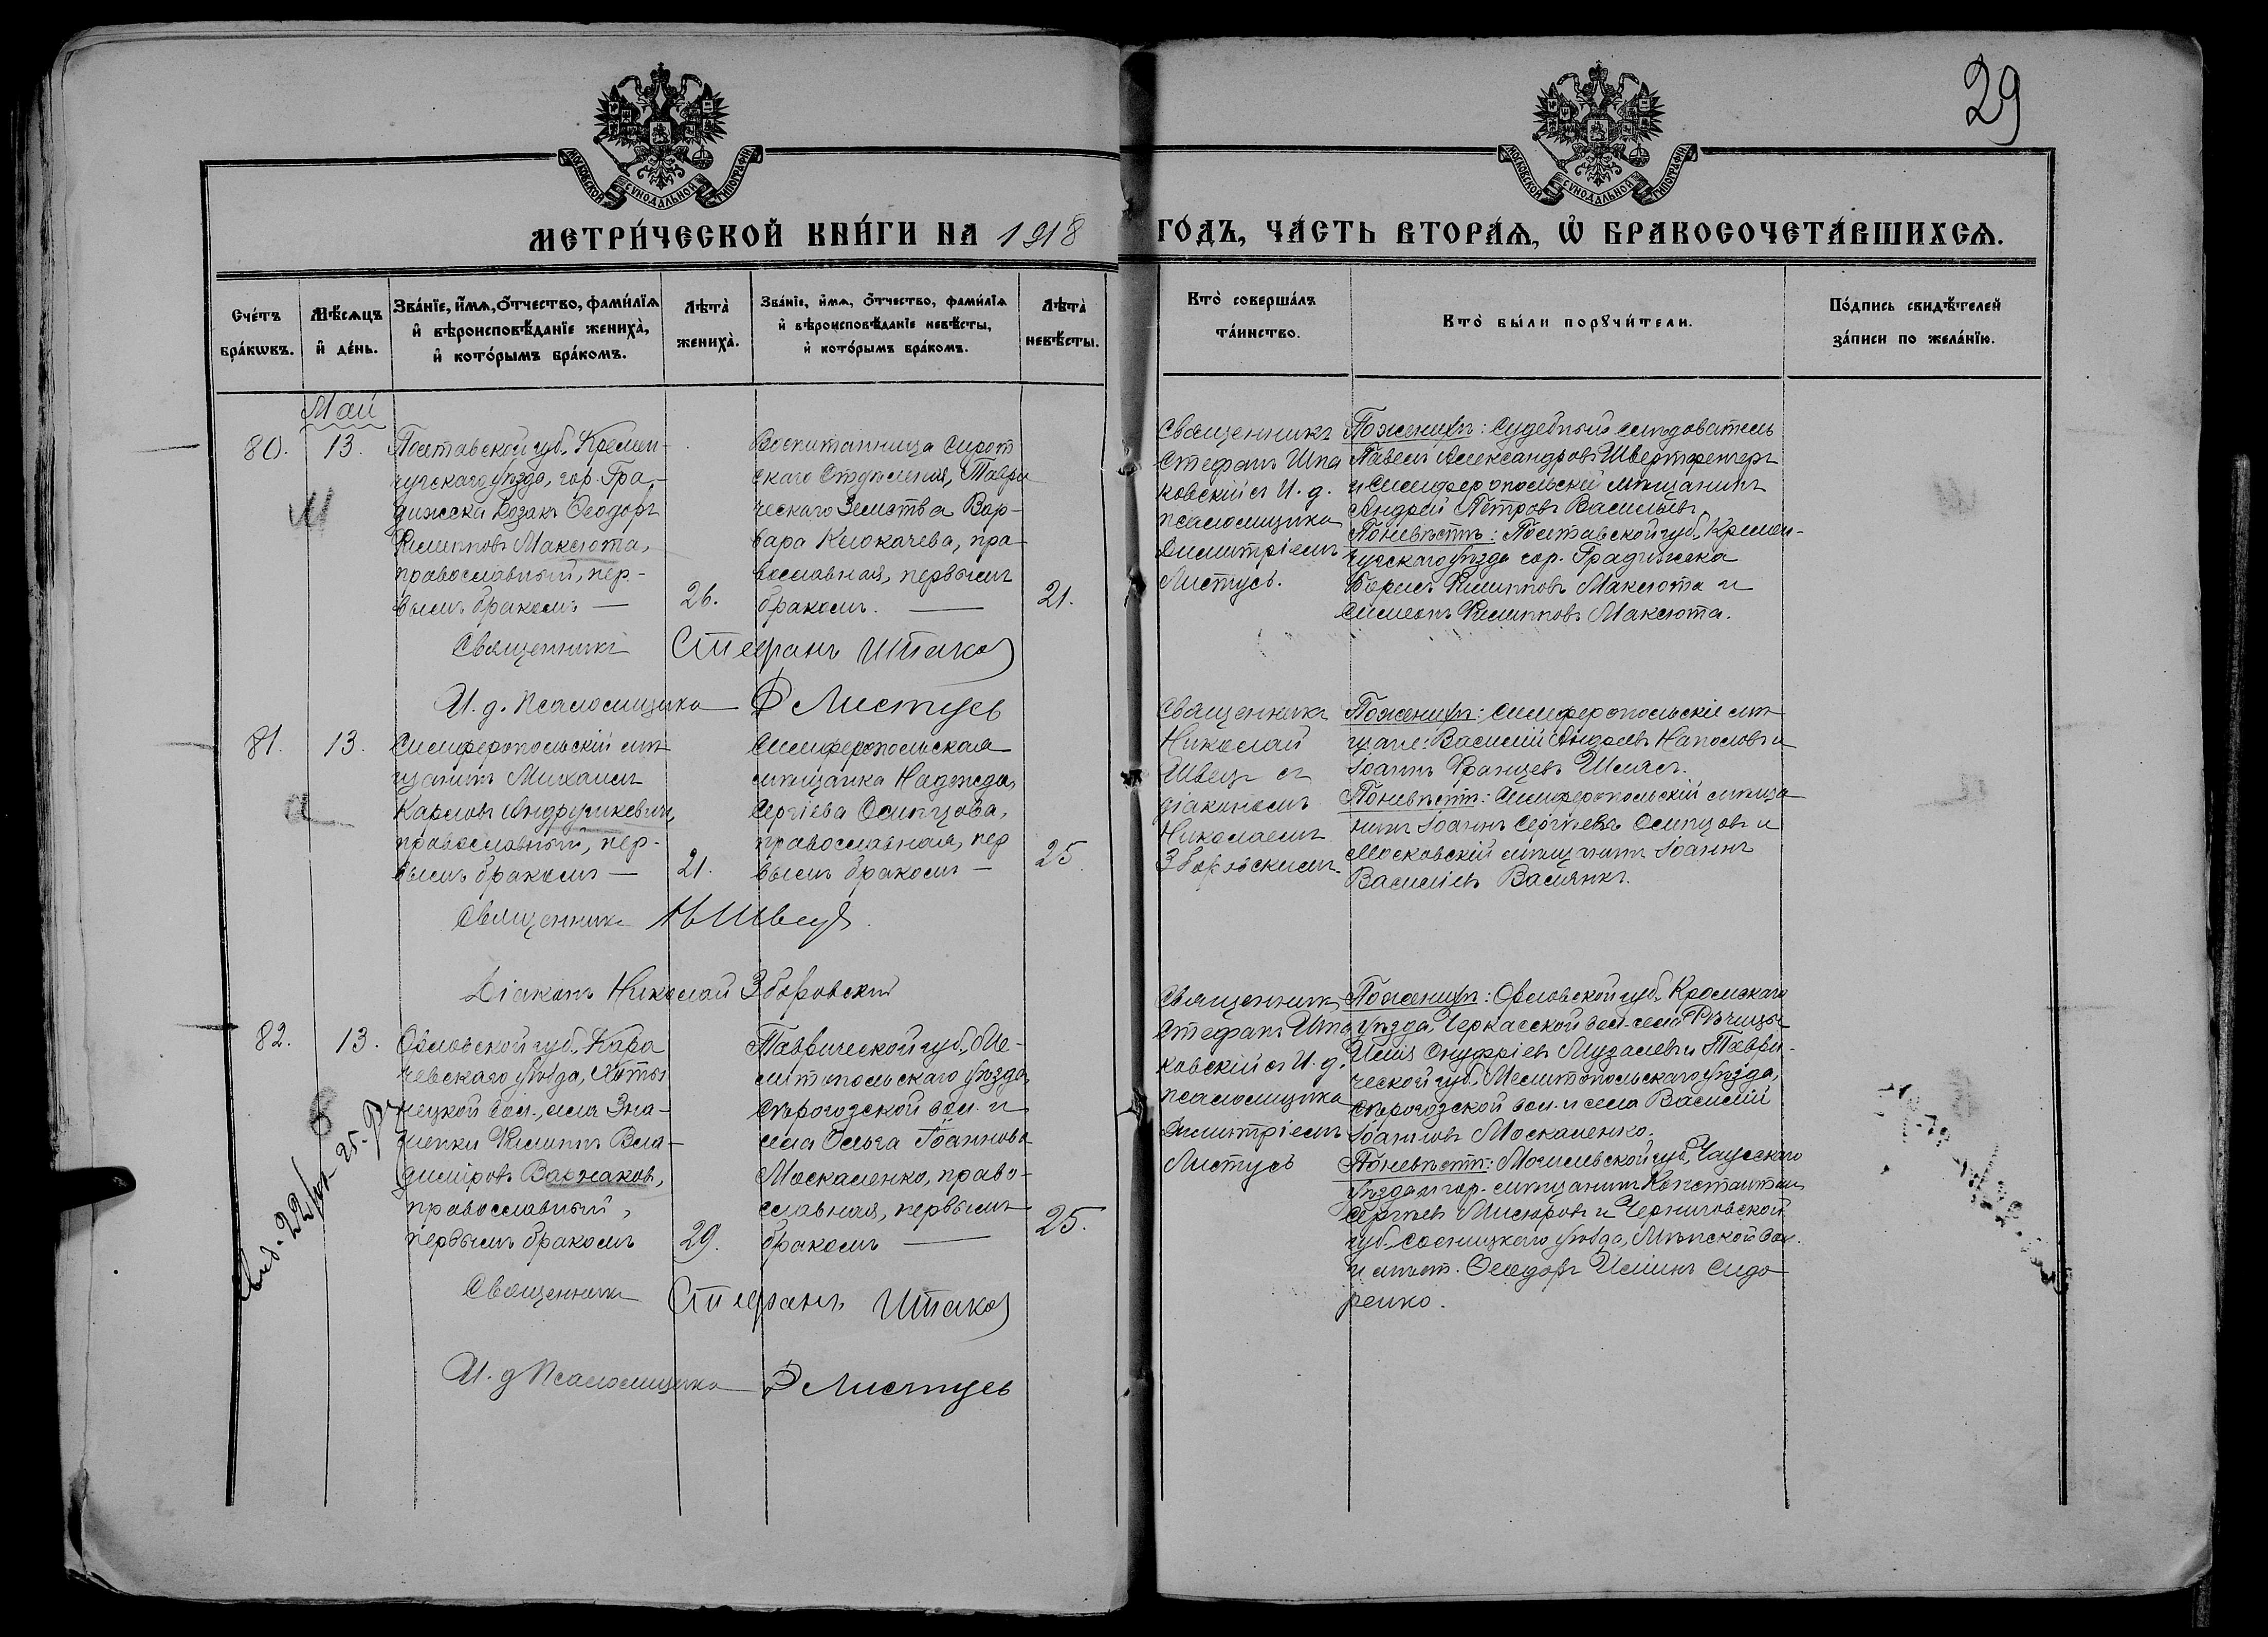 29
МОСКОВСКОЙ СѴНОДАЛЬНОЙ ТИПОГРАФІИ
МОСКОВСКОЙ СѴНОДАЛЬНОЙ ТИПОГРАФІИ
МЕТРИ́ЧЕСКОЙ КНИ́ГИ НА 1918 ГО́ДЪ, ЧА́СТЬ ВТОРА́Ѧ, Ѡ҆ БРАКОСОЧЕТА́ВШИХСѦ.
Сче́тъ
бра́кѡвъ.
Мѣ́сѧцъ
и҆ де́нь.
Зва́нїе, и҆́мѧ, ѻ҆́тчество, фами́лїѧ
и҆ вѣроисповѣ́данїе жениха̀,
и҆ кото́рымъ бра́комъ.
Лѣта̀
жениха̀.
Зва́нїе, и҆́мѧ, ѻ҆́тчество, фами́лїѧ
и҆ вѣроисповѣ́данїе невѣ́сты,
и҆ кото́рымъ бра́комъ.
Лѣта̀
невѣ́сты.
Кто̀ соверша́лъ
та́инство.
Кто̀ бы́ли порꙋчи́тели.
По́дпись свидѣ́телей
за́писи по жела́нїю.
Май
80.
13.
Полтавской губ., Кремен-
чугскаго уѣзда, гор. Гра-
дижска козакъ Ѳеодоръ
Филипповъ Максюта,
православный, пер-
вымъ бракомъ —
26.
Воспитанница Сирот
скаго Отдѣленія, Таври
ческаго Земства Вар-
вара Клокачева, пра-
вославная, первымъ
бракомъ. —
21.
Священникъ
Стефанъ Шпа
ковскій съ И. д.
псаломщика
Димитріемъ
Листусъ.
По женихѣ: Судебный слѣдователь
Павелъ Александровъ Швертфегеръ
и Симферопольскій мѣщанинъ
Андрей Петровъ Васильевъ.
По невѣстѣ: Полтавской губ., Кремен-
чугскаго уѣзда гор. Градижска
Борисъ Филипповъ Максюта и
Симеонъ Филипповъ Максюта.
Священникъ Стефанъ Шпаков
И. д. Псаломщика Д Листусъ
81.
13.
Симферопольскій мѣ
щанинъ Михаилъ
Карловъ Андрушкевичъ,
православный, пер-
вымъ бракомъ —
21.
Симферопольская
мѣщанка Надежда
Сергіева Осипцова,
православная, пер
вымъ бракомъ —
25.
Священникъ
Николай
Швецъ съ
діакономъ
Николаемъ
Зборовскимъ.
По женихѣ: Симферопольскіе мѣ
щане: Василій Андреевъ и
Іоаннъ Францевъ
По невѣстѣ: Симферопольскій мѣща
нинъ Іоаннъ Сергіевъ Осипцовъ и
Московскій мѣщанинъ Іоаннъ
Василіевъ
Священникъ Н Швецъ.
Діаконъ Николай Зборовскій
82.
13.
Орловской губ., Кара
чевскаго уѣзда, Хоты
нецкой вол., села Зна-
менки Филиппъ Вла-
диміровъ Варжаковъ,
православный,
первымъ бракомъ
29.
Таврической губ., Ме-
литопольскаго уѣзда,
Сѣрогозской вол. и
села Ольга Іоаннова
Москаленко, право-
славная, первымъ
бракомъ —
25.
Священникъ
Стефанъ Шпа
ковскій съ И. д.
псаломщика
Димитріемъ
Листусъ
По женихѣ: Орловской губ., Кромскаго
уѣзда, Черкасской вол. села Рѣчицы
Илія Онуфріевъ Музалевъ и Таври-
ческой губ., Мелитопольскаго уѣзда,
Сѣрогозской вол. и села Василій
Іоанновъ Москаленко.
По невѣстѣ: Могилевской губ., Чаусскаго
уѣзда и гор. мѣщанинъ Константинъ
Сергіевъ Мисюровъ и Черниговской
губ., Сосницкаго уѣзда, Мѣнской вол.
и мѣст. Ѳеодоръ Иліинъ Сидо
ренко.
Священникъ Стефанъ Шпаков
И. д Псаломщика Д Листусъ